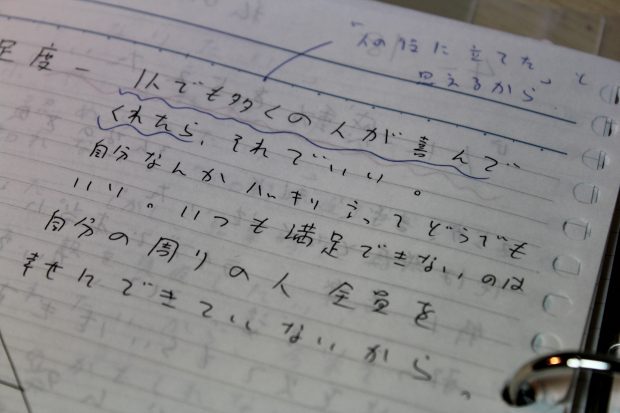 「人の役に立てた」と
思えるから
足度ー 1人でも多くの人が喜んで
くれたら、それでいい。
自分なんかハッキリ言ってどうでも
いい。いつも満足できないのは
自分の周りの人全員を
幸せにできていないから。